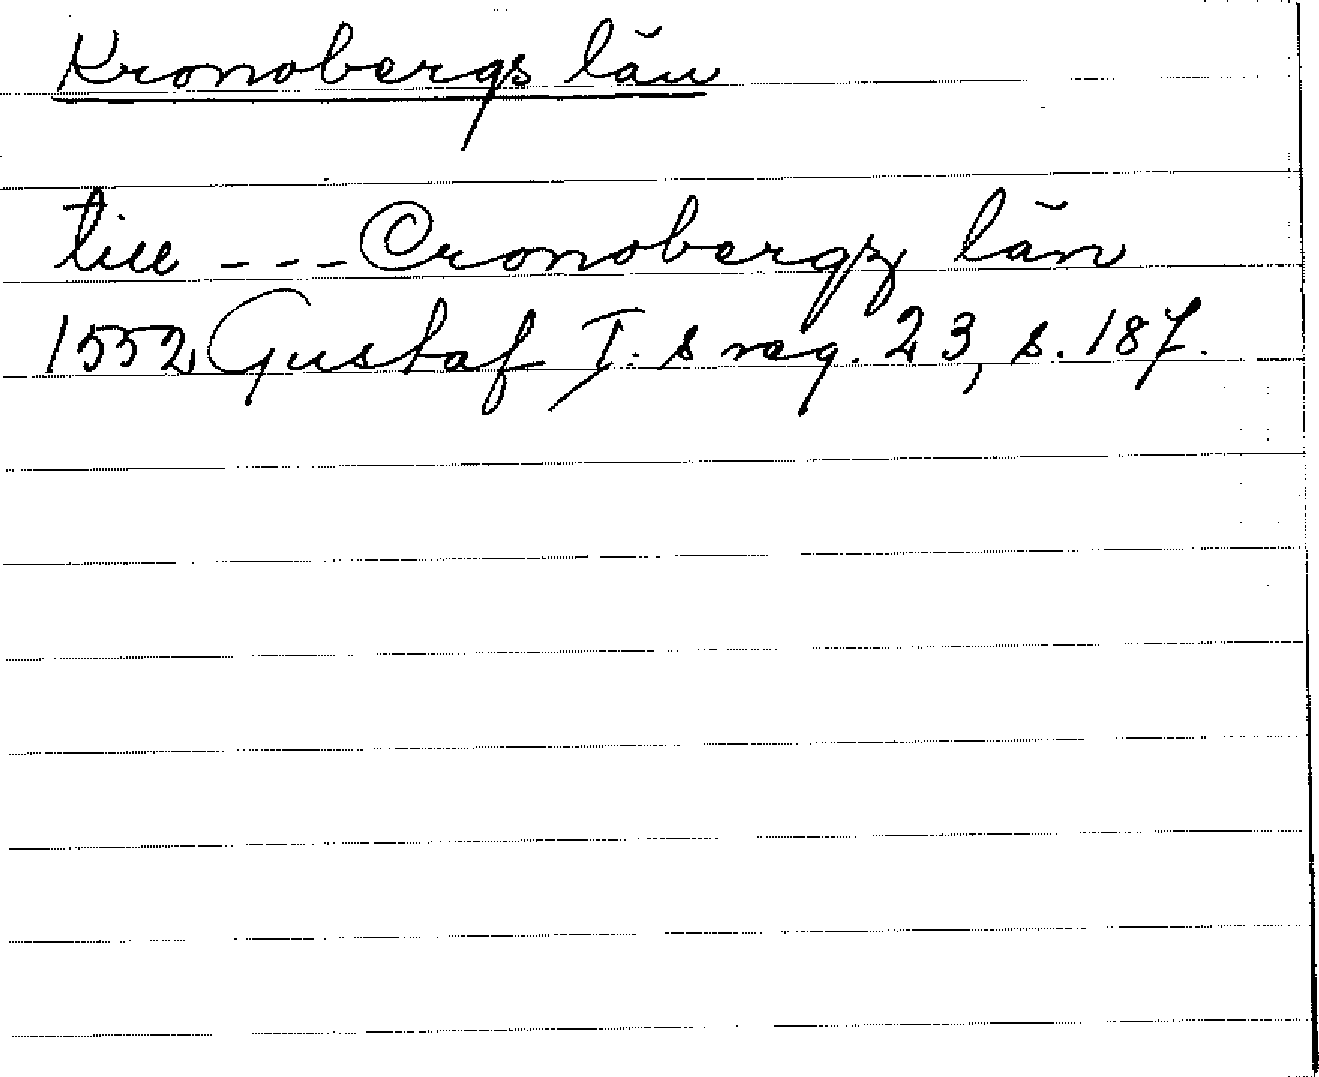 Kronobergs län
till --- Cronobergz län
1552 Gustaf I:s reg. 23, s. 187.